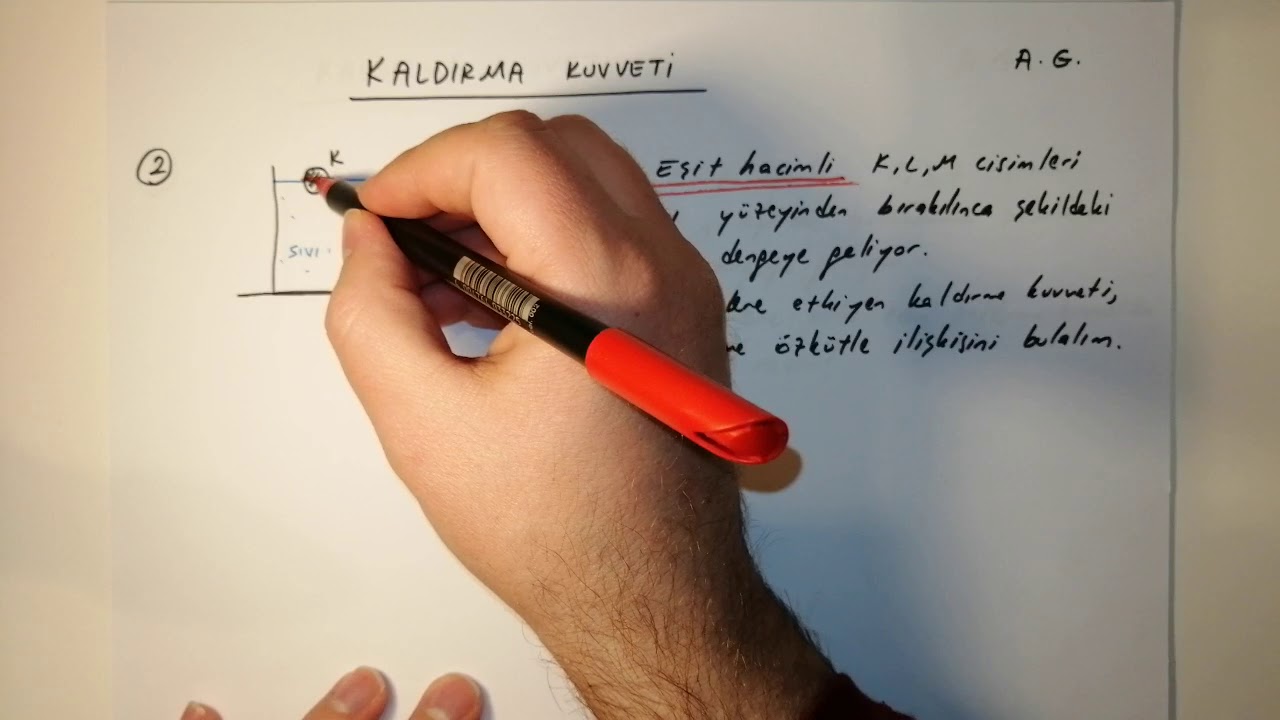 KALDIRMA KUVVETİ
A. G.
2
K
SIVI
Eşit hacimli K, L, M cisimleri
yüzeyinden bırakılınca şekildeki
dengeye geliyor.
etkiyen kaldırma kuvveti,
özkütle ilişkisini bulalım.